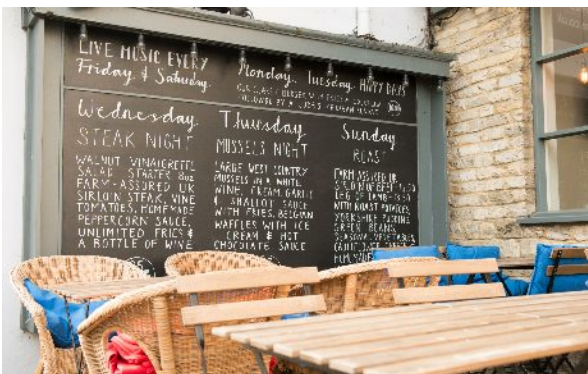 LIVE MUSIC EVERY
Friday & Saturday.
Monday, Tuesday, HAPPY DAYS
Wednesday
STEAK NIGHT
WALNUT VINAIGRETTE
SALAD STARTER 8oz
FARM-ASSURED UK
SIRLOIN STEAK, VINE
TOMATOES, HOMEMADE
PEPPERCORN SAUCE,
UNLIMITED FRIES &
A BOTTLE OF WINE
Thursday
MUSSELS NIGHT
LARGE WEST COUNTRY
MUSSELS IN A WHITE
WINE, CREAM, GARLIC
& SHALLOT SAUCE
WITH FRIES, BELGIAN
WAFFLES WITH ICE
CREAM & HOT
CHOCOLATE SAUCE
Sunday
ROAST
FARM ASSURED UK
SIRLOIN OF BEEF
LEG OF LAMB
WITH ROAST POTATOES,
YORKSHIRE PUDDING
GREEN BEANS,
SEASONAL VEGETABLES